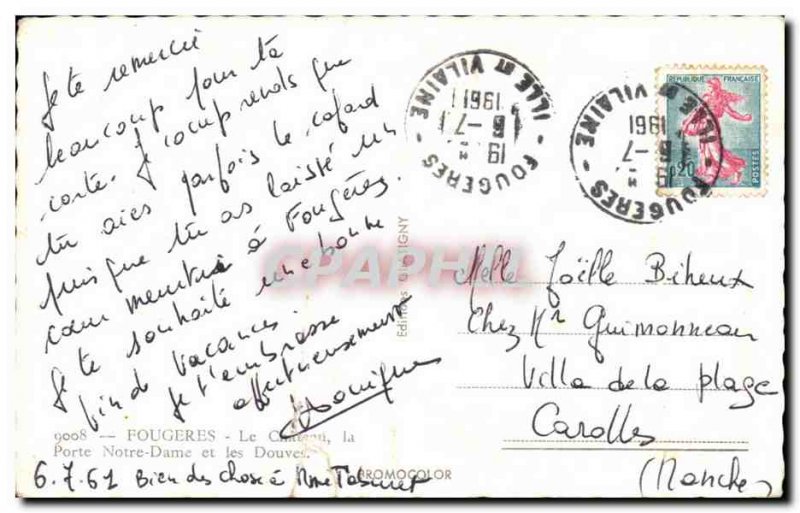 Je te remercie
beaucoup pour ta
carte. Je comprends que
tu aies parfois le cafard
puisque tu as laissé un
cœur meurtri à Fougères.
Je te souhaite une bonne
fin de vacances.
Je t'embrasse
affectueusement
9008 — FOUGERES - Le Château, la
Porte Notre-Dame et les Douves.
6.7.61 Bien des choses à Mme
BROMOCOLOR
Editions
CPAPHIL
FOUGERES
19 H
6-7
1961
ILLE ET VILAINE
FOUGERES
19 H
6-7
1961
ILLE ET VILAINE
REPUBLIQUE FRANÇAISE
0,20
POSTES
Melle Joëlle Biheux
Chez Mr Guimonneau
Villa de la plage
Carolles
(Manche)